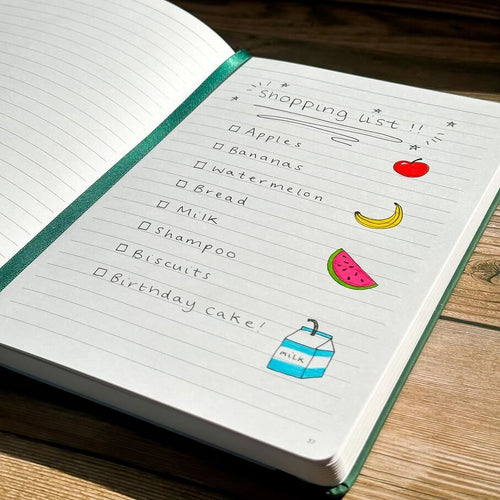 Shopping list !!
Apples
Bananas
Watermelon
Bread
Milk
Shampoo
Biscuits
Birthday cake!
MILK